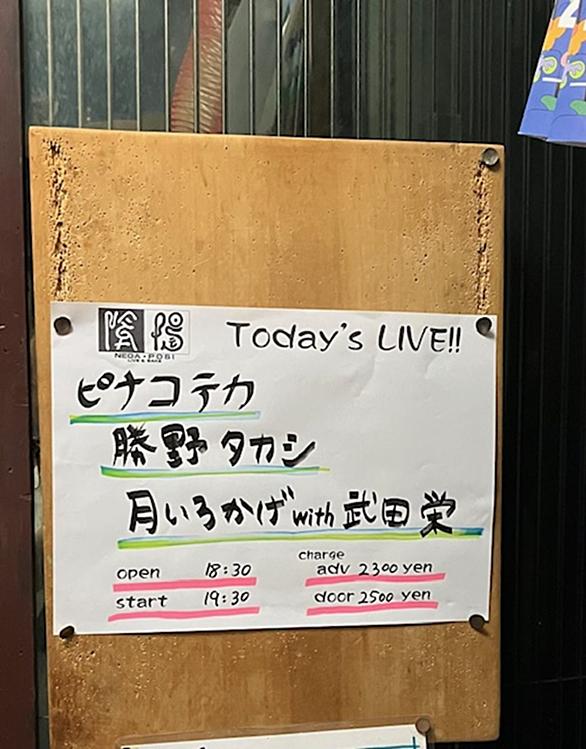 陰陽
NEGA・POSI
LIVE & BAKE
Today's LIVE!!
ピナコテカ
勝野タカシ
月いろかげ with 武田栄
open 18:30
start 19:30
charge
adv 2300 yen
door 2500 yen